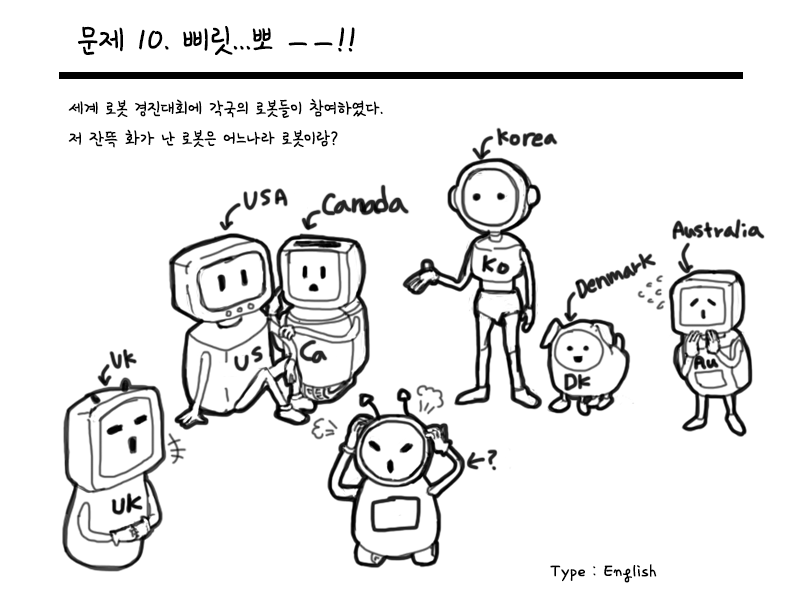 문제 10. 삐릿...뽀 ——!!
세계 로봇 경진대회에 각국의 로봇들이 참여하였다.
저 잔뜩 화가 난 로봇은 어느나라 로봇이람?
Korea
USA
Canada
Australia
Denmark
Ko
US
Ca
UK
DK
Au
UK
?
Type : English